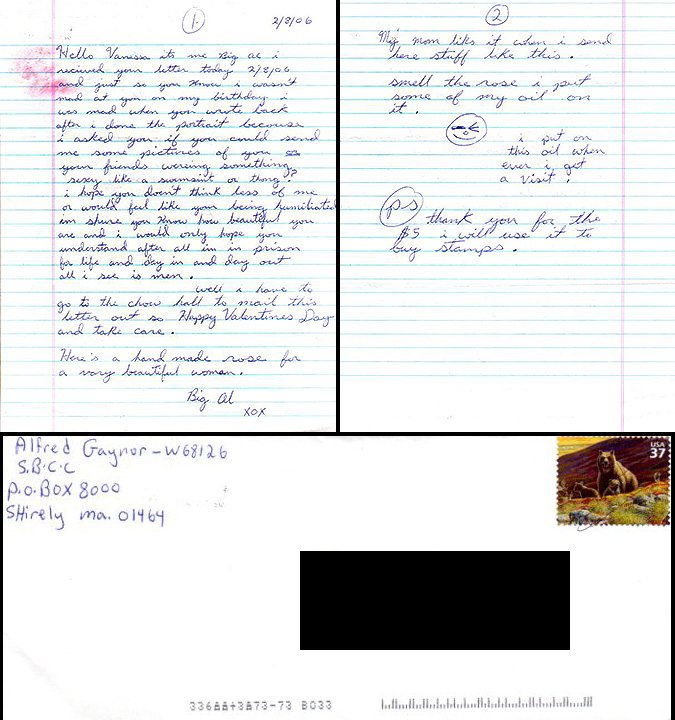 1.
2/8/06
Hello Vanessa its me Big al i
recived your letter today 2/8/06
and just so you know i wasn't
mad at you on my birthday i
was mad when you wrote back
after i done the portrait because
i asked you if you could send
me some pictures of you or
your friends wereing something
sexy like a swimsuit or thong??
i hope you don't think less of me
or would feel like your being humiliated
im shure you know how beautiful you
are and i would only hope you
understand after all im in prison
for life and day in and day out
all i see is men.
well i have to
go to the chow hall to mail this
letter out so Happy Valentines Day
and take care.
Here's a hand made rose for
a vary beautiful woman.
Big Al
XOX
2
My mom liks it when i send
here stuff like this.
smell the rose i put
some of my oil on
it.
i put on
this oil when
ever i get
a visit!
ps
thank you for the
$5 i will use it to
buy stamps.
Alfred Gaynor-W68126
S.B.C.C
P.O.BOX 8000
SHirely ma. 01464
USA
37
336AA+3A73-73 B033